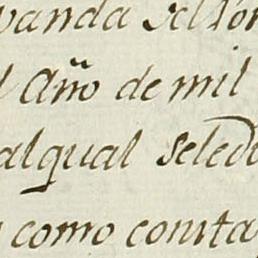 vanda del
l Año de mil
alqual sele
como consta